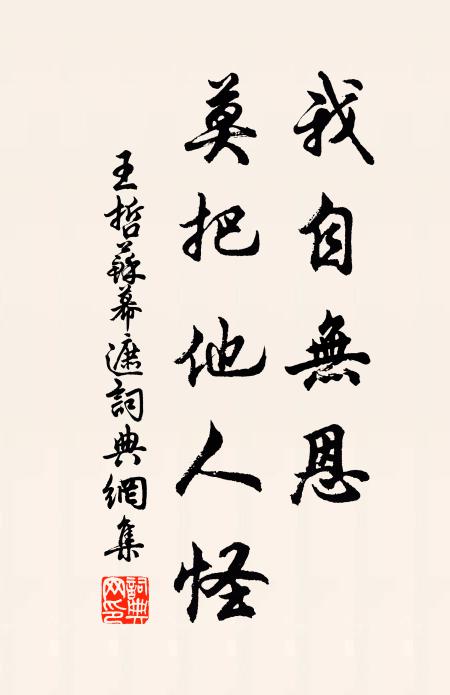 我自無恩
莫把他人怪
王哲蘇幕遮詞典網集
詞典網印